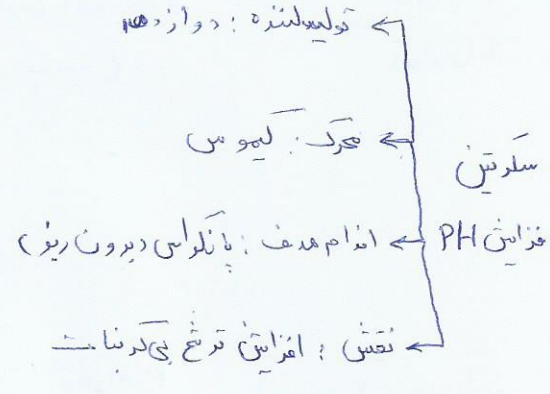 تولیدکننده : دوازدهه
محرک : کیموس
سکرتین
افزایش PH
اندام هدف : پانکراس (برون ریز)
نقش : افزایش ترشح بی کربنات